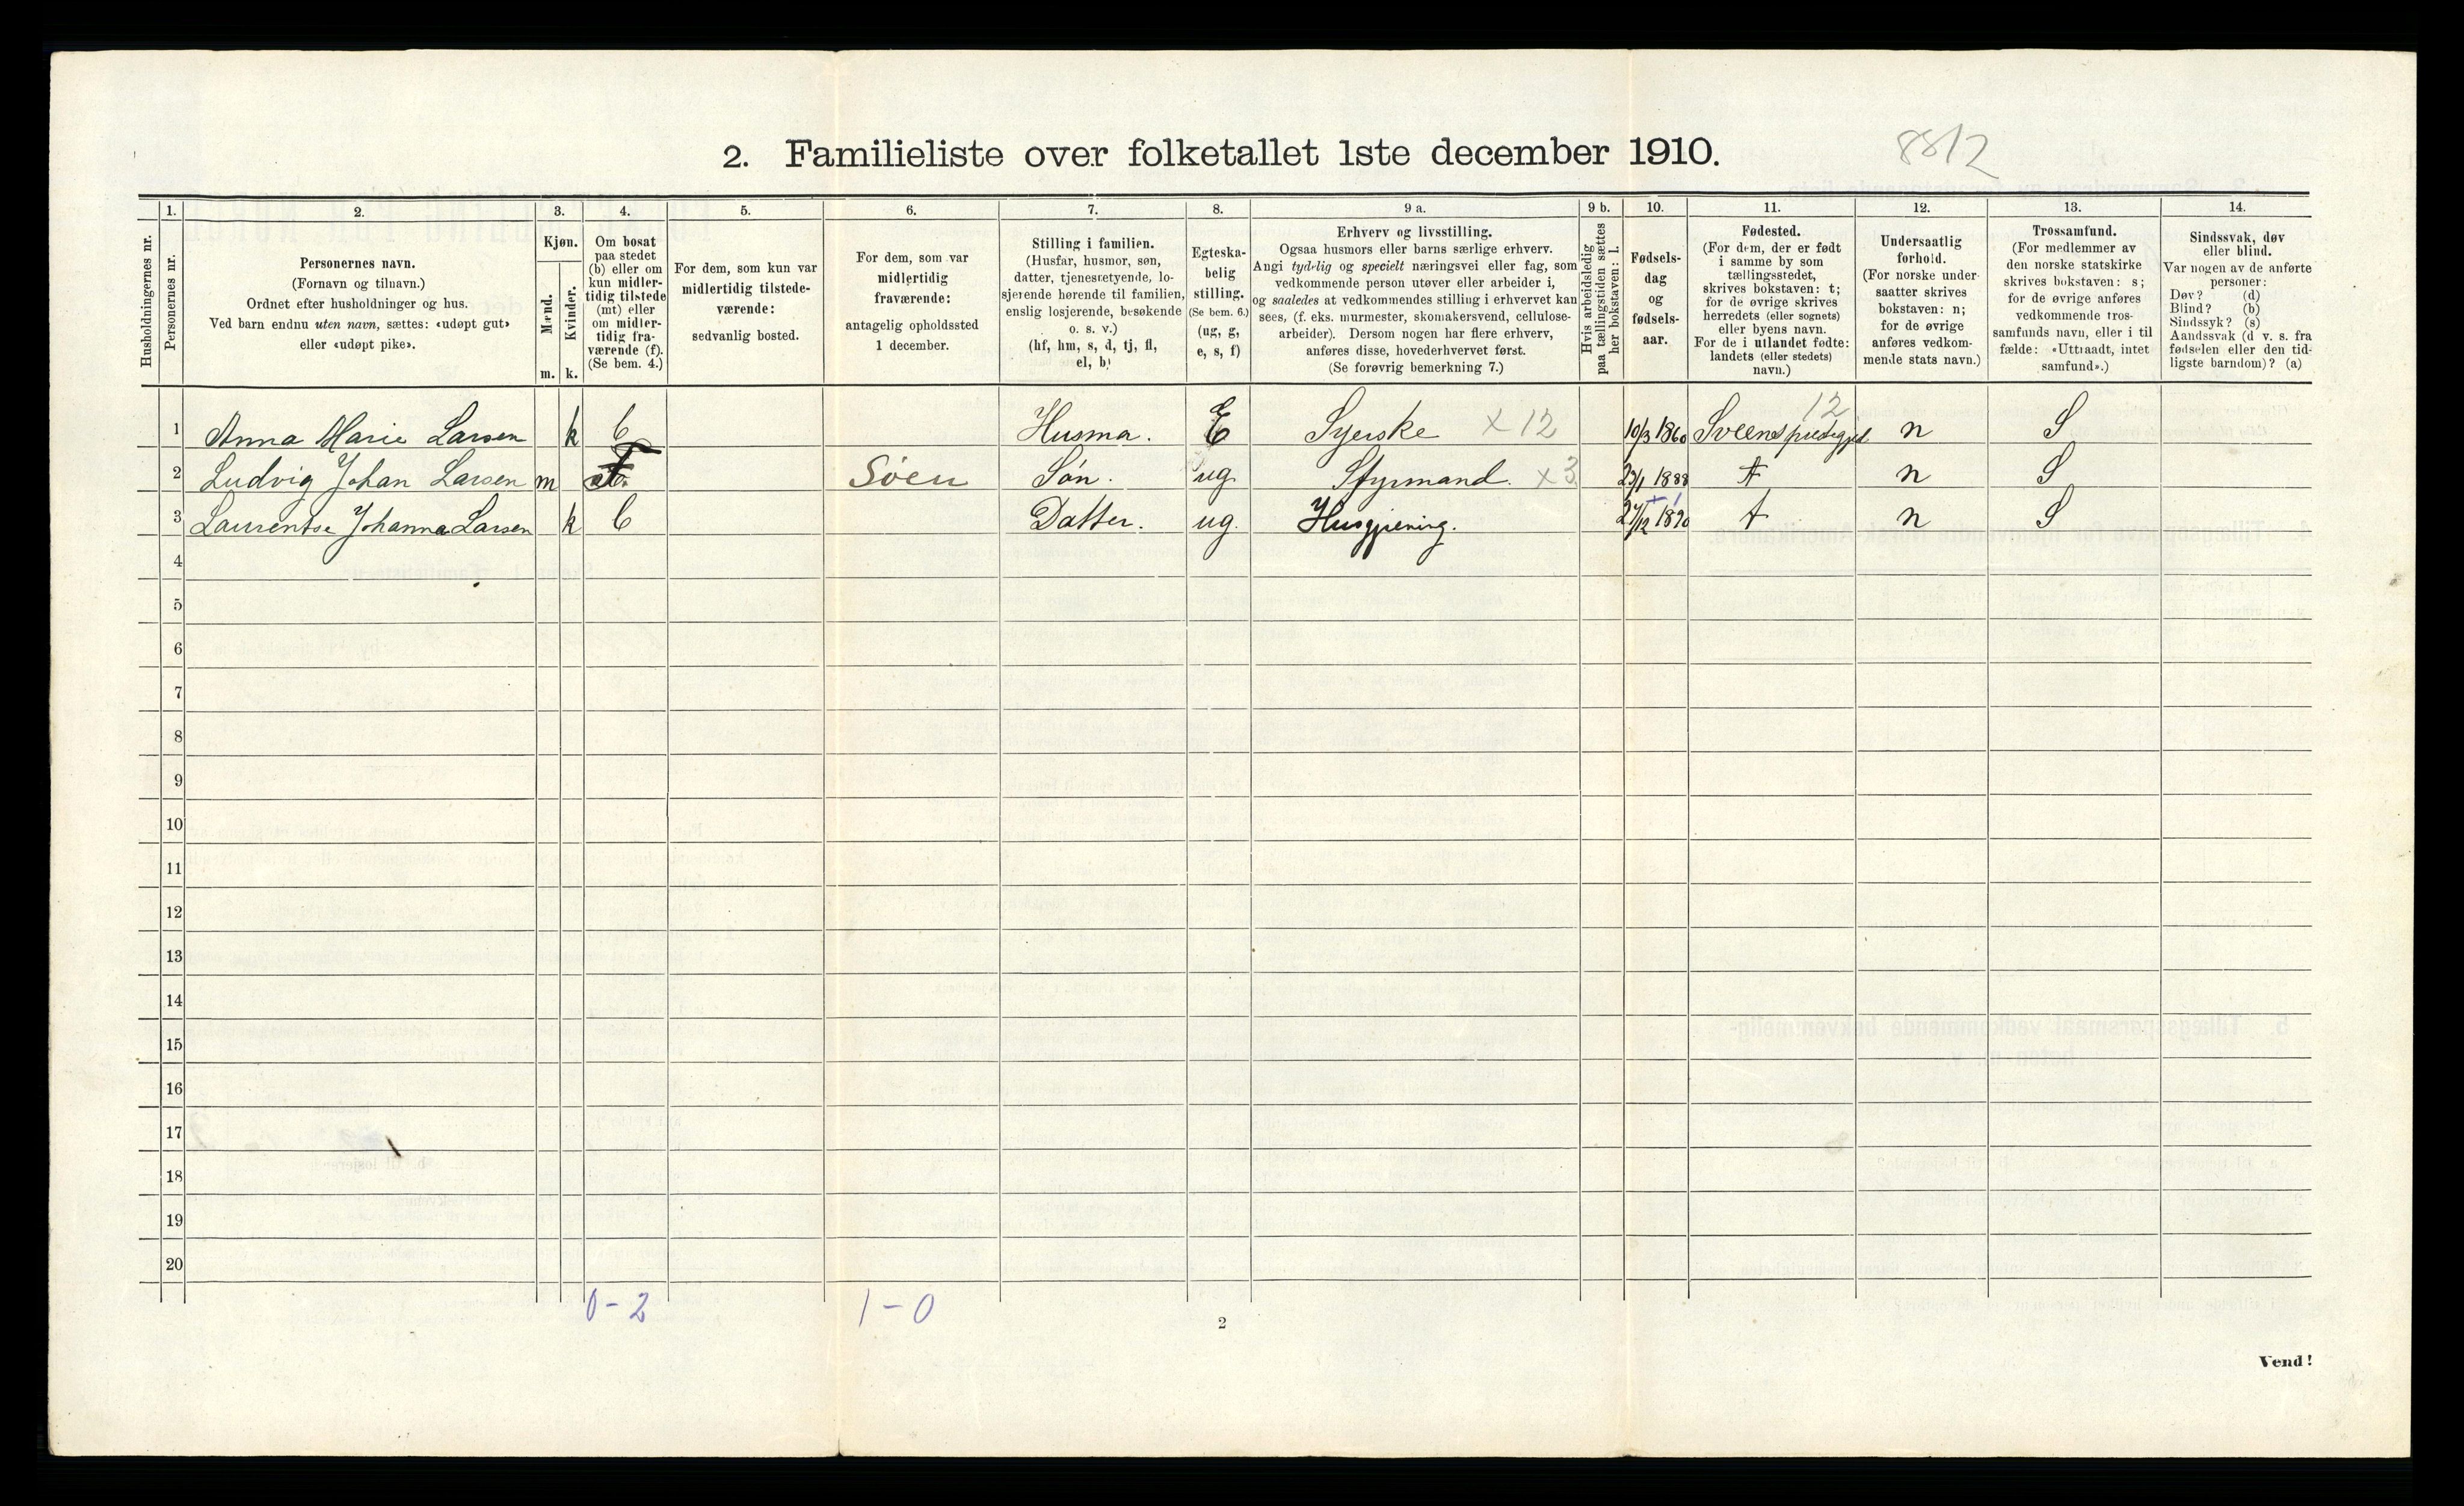 2. Familieliste over folketallet 1ste december 1910.
8812
1. 2. 3. 4. 5. 6. 7. 8. 9 a. 9 b. 10. 11. 12. 13. 14.
Husholdningernes nr.
Personernes nr.
Personernes navn.
(Fornavn og tilnavn.)
Ordnet efter husholdninger og hus.
Ved barn endnu uten navn, sættes: «udøpt gut»
eller «udøpt pike».
Kjøn.
Mænd.
Kvinder.
m. k.
Om bosat
paa stedet
(b) eller om
kun midler-
tidig tilstede
(mt) eller
om midler-
tidig fra-
værende (f).
(Se bem. 4.)
For dem, som kun var
midlertidig tilstede-
værende:
sedvanlig bosted.
For dem, som var
midlertidig
fraværende:
antagelig opholdssted
1 december.
Stilling i familien.
(Husfar, husmor, søn,
datter, tjenestetyende, lo-
sjerende hørende til familien,
enslig losjerende, besøkende
o. s. v.)
(hf, hm, s, d, tj, fl,
el, b)
Egteska-
belig
stilling.
(Se bem. 6.)
(ug, g,
e, s, f)
Erhverv og livsstilling.
Ogsaa husmors eller barns særlige erhverv.
Angi tydelig og specielt næringsvei eller fag, som
vedkommende person utøver eller arbeider i,
og saaledes at vedkommendes stilling i erhvervet kan
sees, (f. eks. murmester, skomakersvend, cellulose-
arbeider). Dersom nogen har flere erhverv,
anføres disse, hovederhvervet først.
(Se forøvrig bemerkning 7.)
Hvis arbeidsledig
paa tællingstiden sættes
her bokstaven: l.
Fødsels-
dag
og
fødsels-
aar.
Fødested.
(For dem, der er født
i samme by som
tællingsstedet,
skrives bokstaven: t;
for de øvrige skrives
herredets (eller sognets)
eller byens navn.
For de i utlandet fødte:
landets (eller stedets)
navn.)
Undersaatlig
forhold.
(For norske under-
saatter skrives
bokstaven: n;
for de øvrige
anføres vedkom-
mende stats navn.)
Trossamfund.
(For medlemmer av
den norske statskirke
skrives bokstaven: s;
for de øvrige anføres
vedkommende tros-
samfunds navn, eller i til
fælde: «Uttraadt, intet
samfund».)
Sindssvak, døv
eller blind.
Var nogen av de anførte
personer:
Døv? (d)
Blind? (b)
Sindssyk? (s)
Aandssvak (d v. s. fra
fødselen eller den tid-
ligste barndom)? (a)
12
1 Anna Marie Larsen k b Husmo. E Syerske x 12 10/3 1860 n S
2 Ludvig Johan Larsen m f Søen Søn. ug. Styrmand. x 3 23/1 1888 t n S
3 Laurentse Johanna Larsen k b Datter. ug. Husgjerning. 27/12 1890 t n S
4
5
6
7
8
9
10
11
12
13
14
15
16
17
18
19
20
0 - 2 1 - 0
2
Vend!